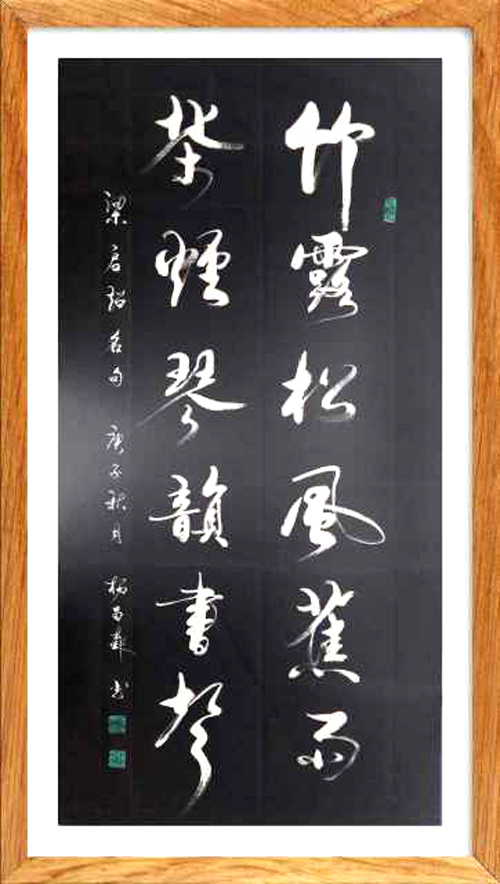 竹露松風蕉雨
茶煙琴韻書聲
梁启超名句 庚子秋月 楊 書